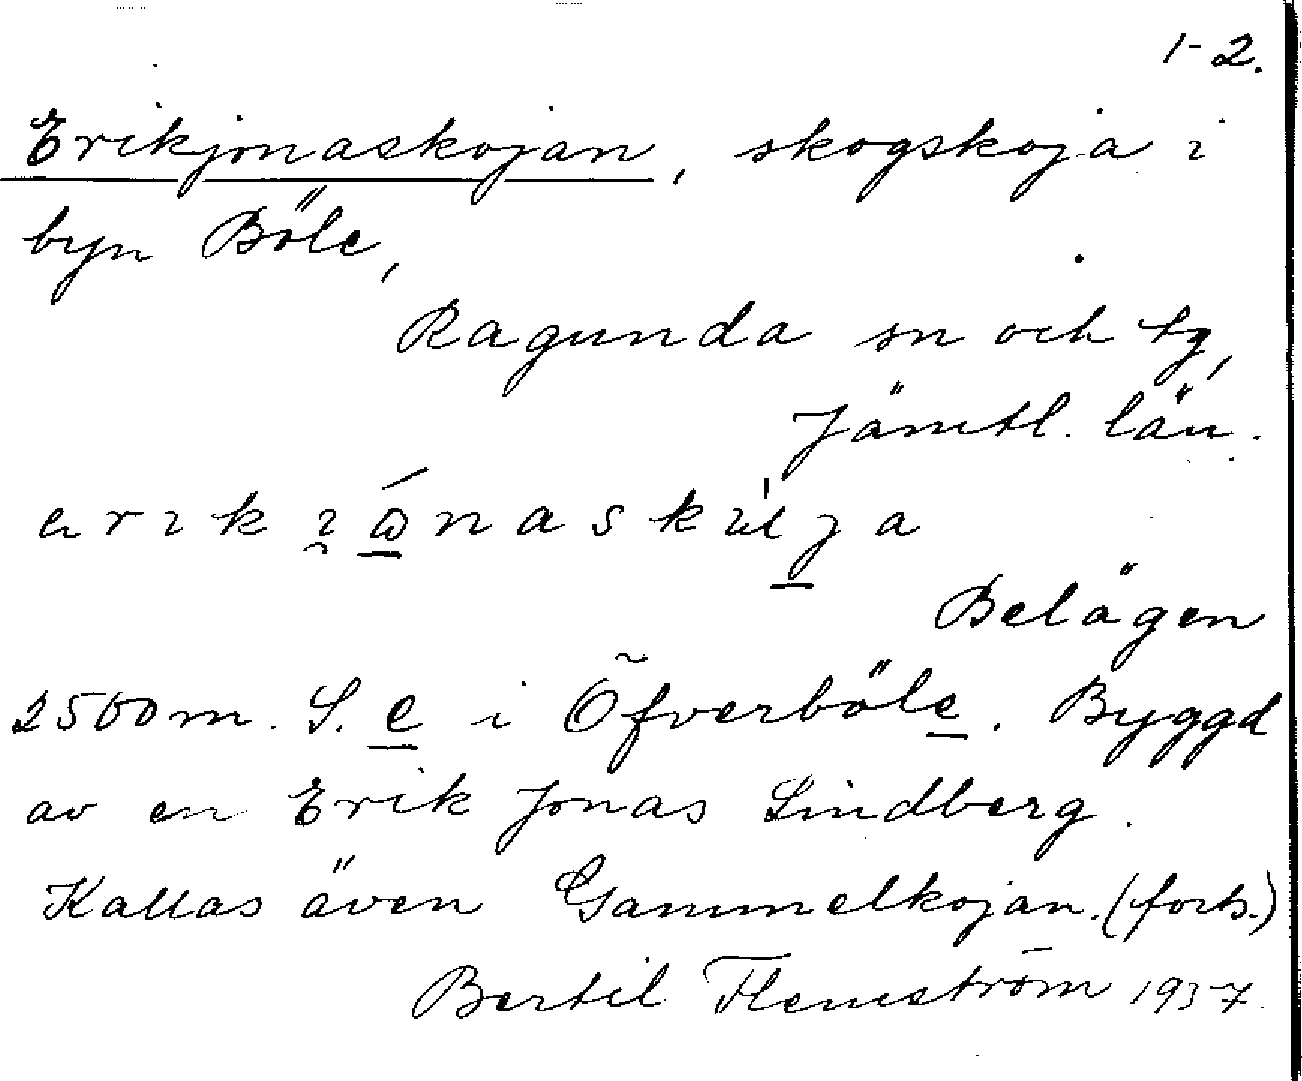 1-2.
Erikjonaskojan, skogskoja i
byn Böle,
Ragunda sn och tg,
Jämtl. län.
Belägen
2500 m. S. e i Öfverböle. Byggd
av en Erik Jonas Lindberg.
Kallas även Gammelkojan. (forts.)
Bertil Flemström 1937